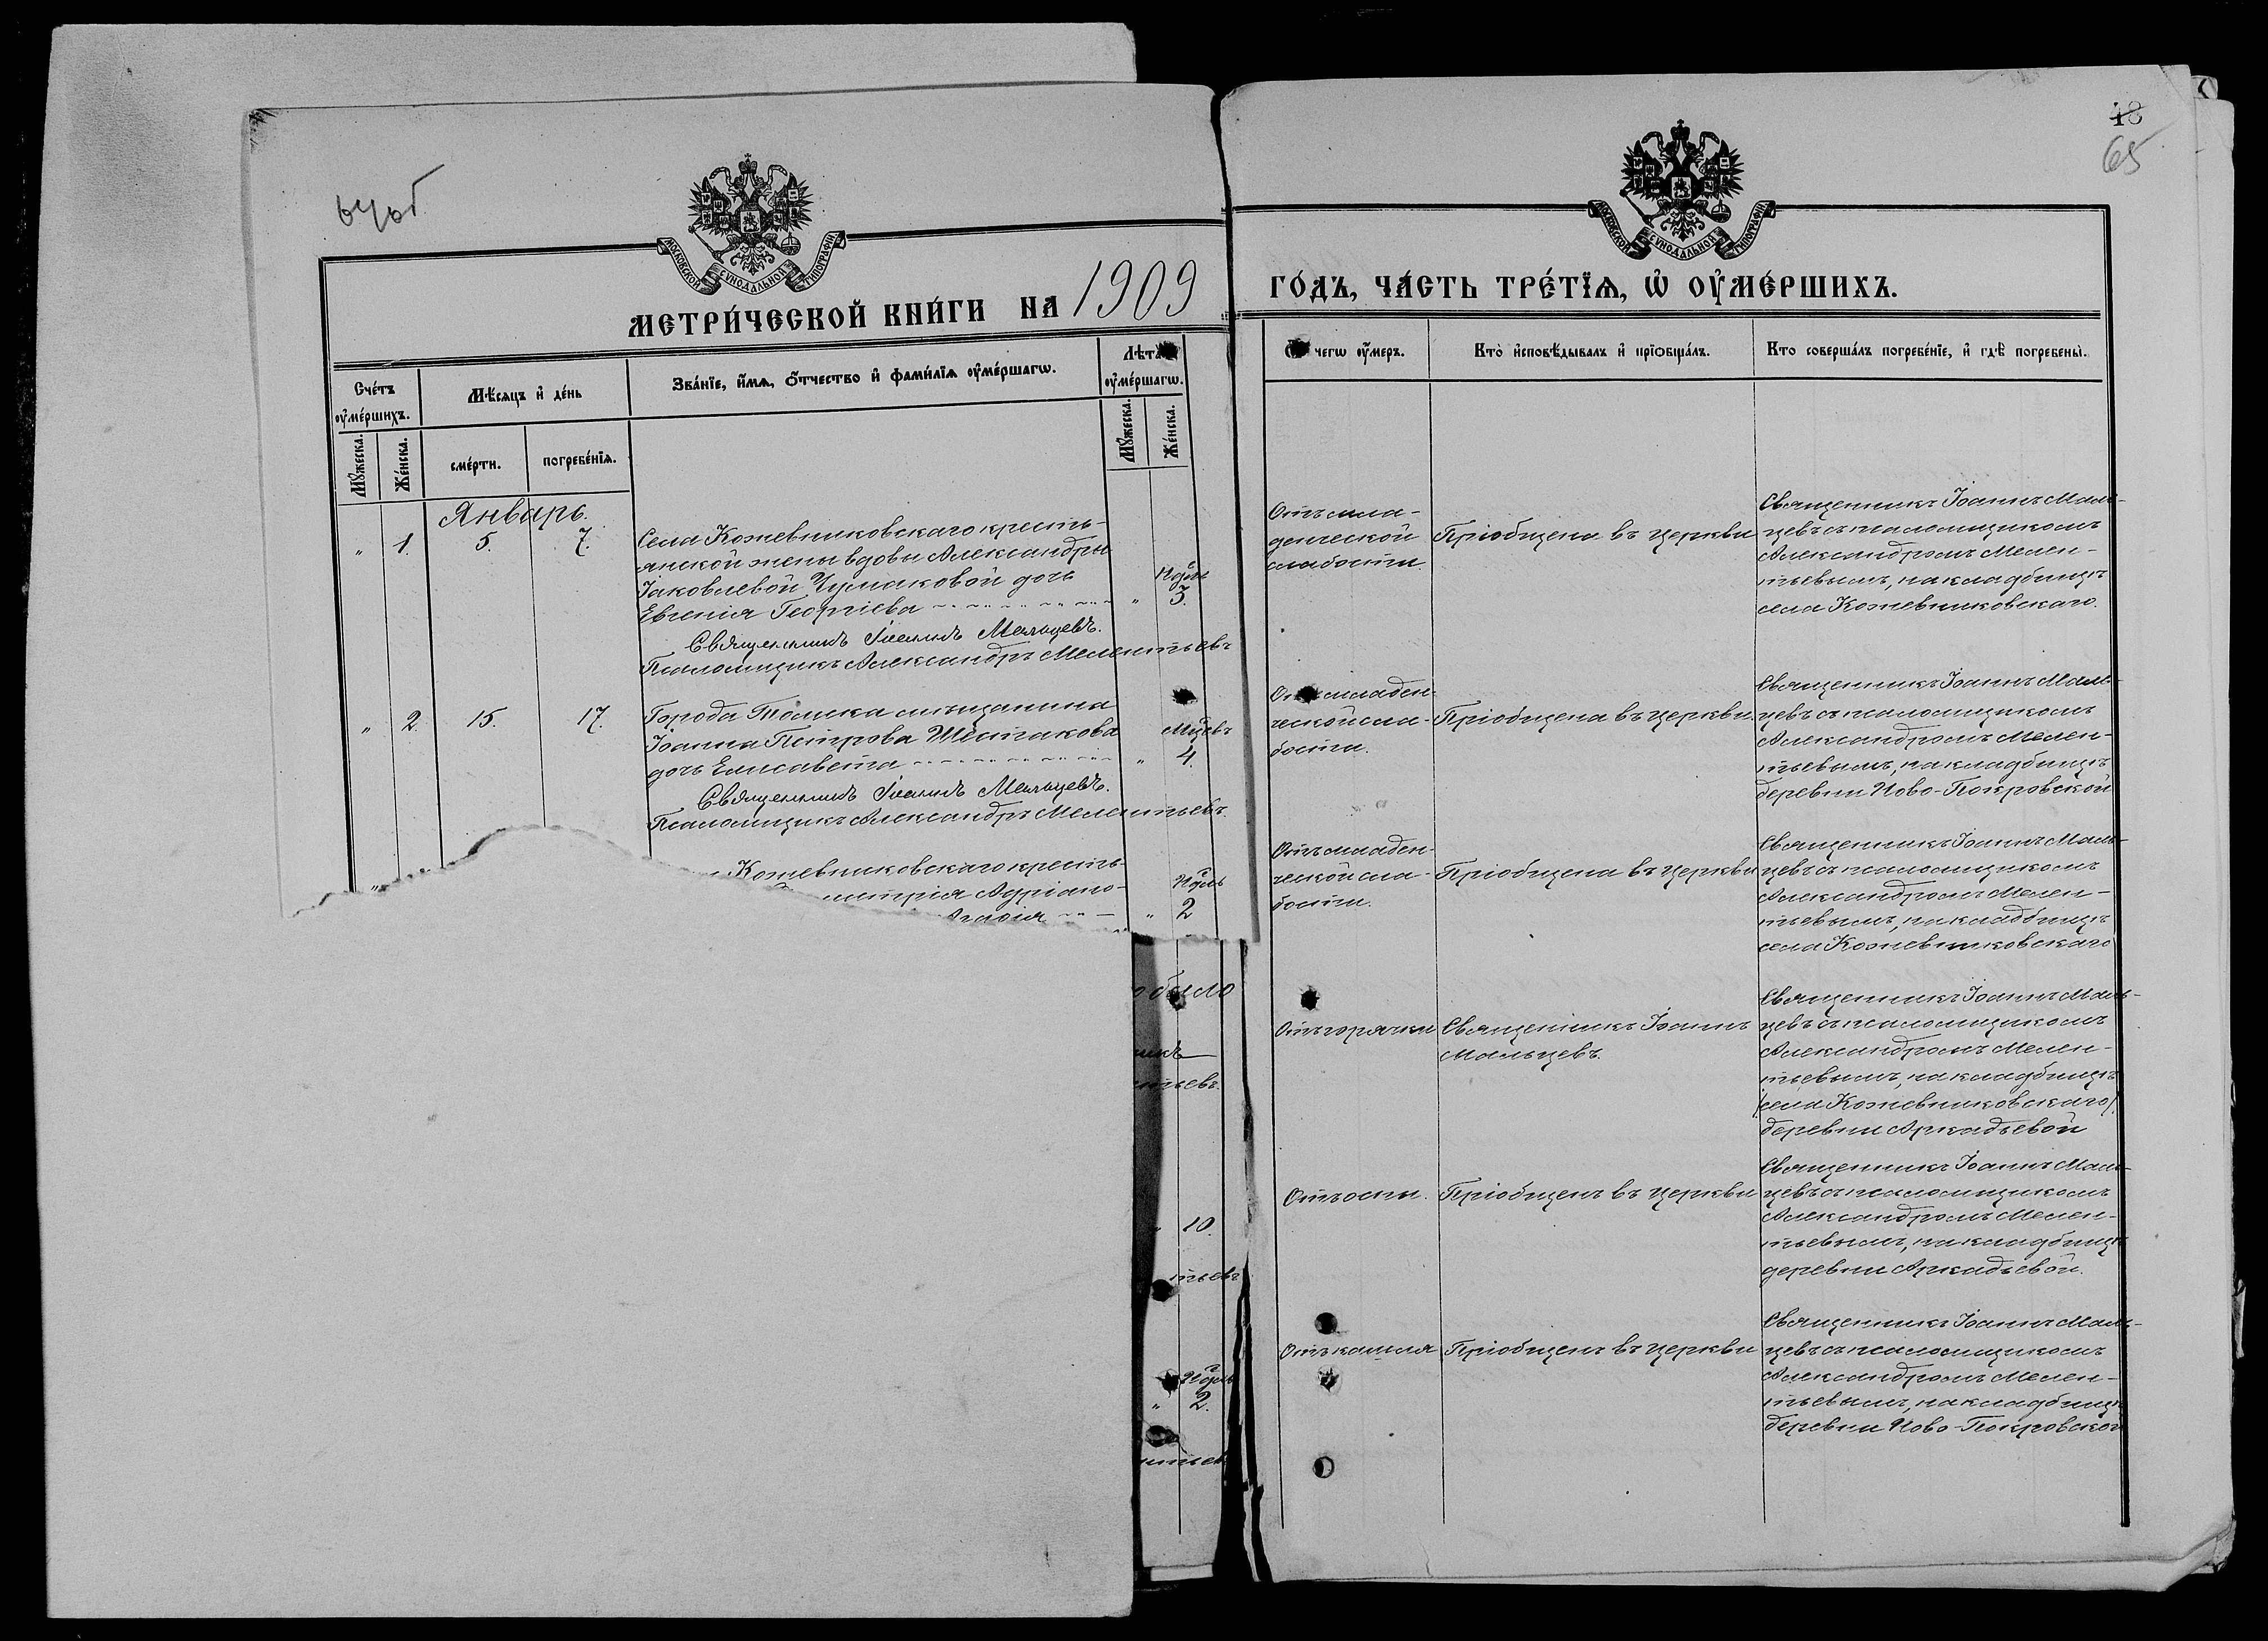 64об
МОСКОВСКОЙ СѴНОДАЛЬНОЙ ТИПОГРАФІИ
МЕТРИ́ЧЕСКОЙ КНИ́ГИ НА 1909
Сче́тъ ᲂу҆ме́ршихъ.
Мꙋ́жеска.
Же́нска.
Мѣ́сяцъ и҆ де́нь
сме́рти.
погребе́нїѧ.
Зва́нїе, и҆́мѧ, ѻ҆́тчество и҆ фами́лїѧ ᲂу҆ме́ршагѡ.
Лѣта
ᲂу҆ме́ршагѡ.
Мꙋ́жеска.
Же́нска.
Январь.
" 1. 5. 7.
Села Кожевниковскаго кресть-
янской жены вдовы Александры
Іаковлевой Чумаковой дочь
Евгенія Георгіева " Нѣдѣль 3.
Священникъ Іоаннъ Мальцевъ.
Псаломщикъ Александръ Мелентьевъ
" 2. 15. 17.
Города Томска мѣщанина
Іоанна Петрова Шестакова
дочь Елисавета " Мцевъ 4.
Священникъ Іоаннъ Мальцевъ.
Псаломщикъ Александръ Мелентьевъ.
Кожевниковскаго кресть-
митрія Адріано-
" Нѣдѣль 2
о было
икъ
нтьевъ.
" 10.
тьевъ
Нѣдѣль
" 2.
нтьевъ
18
65
МОСКОВСКОЙ СѴНОДАЛЬНОЙ ТИПОГРАФІИ
ГО́ДЪ, ЧА́СТЬ ТРЕ́ТЇѦ, Ѡ҆ ОУ҆МЕ́РШИХЪ.
чегѡ ᲂу҆́меръ.
Кто̀ и҆сповѣ́дывалъ и҆ прїѡбща́лъ.
Кто соверша́лъ погребе́нїе, и҆ гдѣ̀ погребены̀.
Отъ мла-
денческой
слабости.
Пріобщена въ церкви
Священникъ Іоаннъ Маль-
цевъ съ псаломщикомъ
Александромъ Мелен-
тьевымъ, на кладбищѣ
села Кожевниковскаго.
младен-
ческой сла-
бости.
Пріобщена въ церкви.
Священникъ Іоаннъ Маль-
цевъ съ псаломщикомъ
Александромъ Мелен-
тьевымъ, на кладбищѣ
деревни Ново-Покровской
Отъ младен-
ческой сла-
бости.
Пріобщена въ церкви
Священникъ Іоаннъ Маль-
цевъ съ псаломщикомъ
Александромъ Мелен-
тьевымъ, на кладбищѣ
села Кожевниковскаго
Отъ горячки
Священникъ Іоаннъ
Мальцевъ.
Священникъ Іоаннъ Маль-
цевъ съ псаломщикомъ
Александромъ Мелен-
тьевымъ, на кладбищѣ
(села Кожевниковскаго)
деревни Аркадьевой
Отъ оспы.
Пріобщенъ въ церкви
Священникъ Іоаннъ Маль-
цевъ съ псаломщикомъ
Александромъ Мелен-
тьевымъ, на кладбищѣ
деревни Аркадьевой.
Отъ кашля
Пріобщенъ въ церкви
Священникъ Іоаннъ Маль-
цевъ съ псаломщикомъ
Александромъ Мелен-
тьевымъ, на кладбищѣ
деревни Ново-Покровской